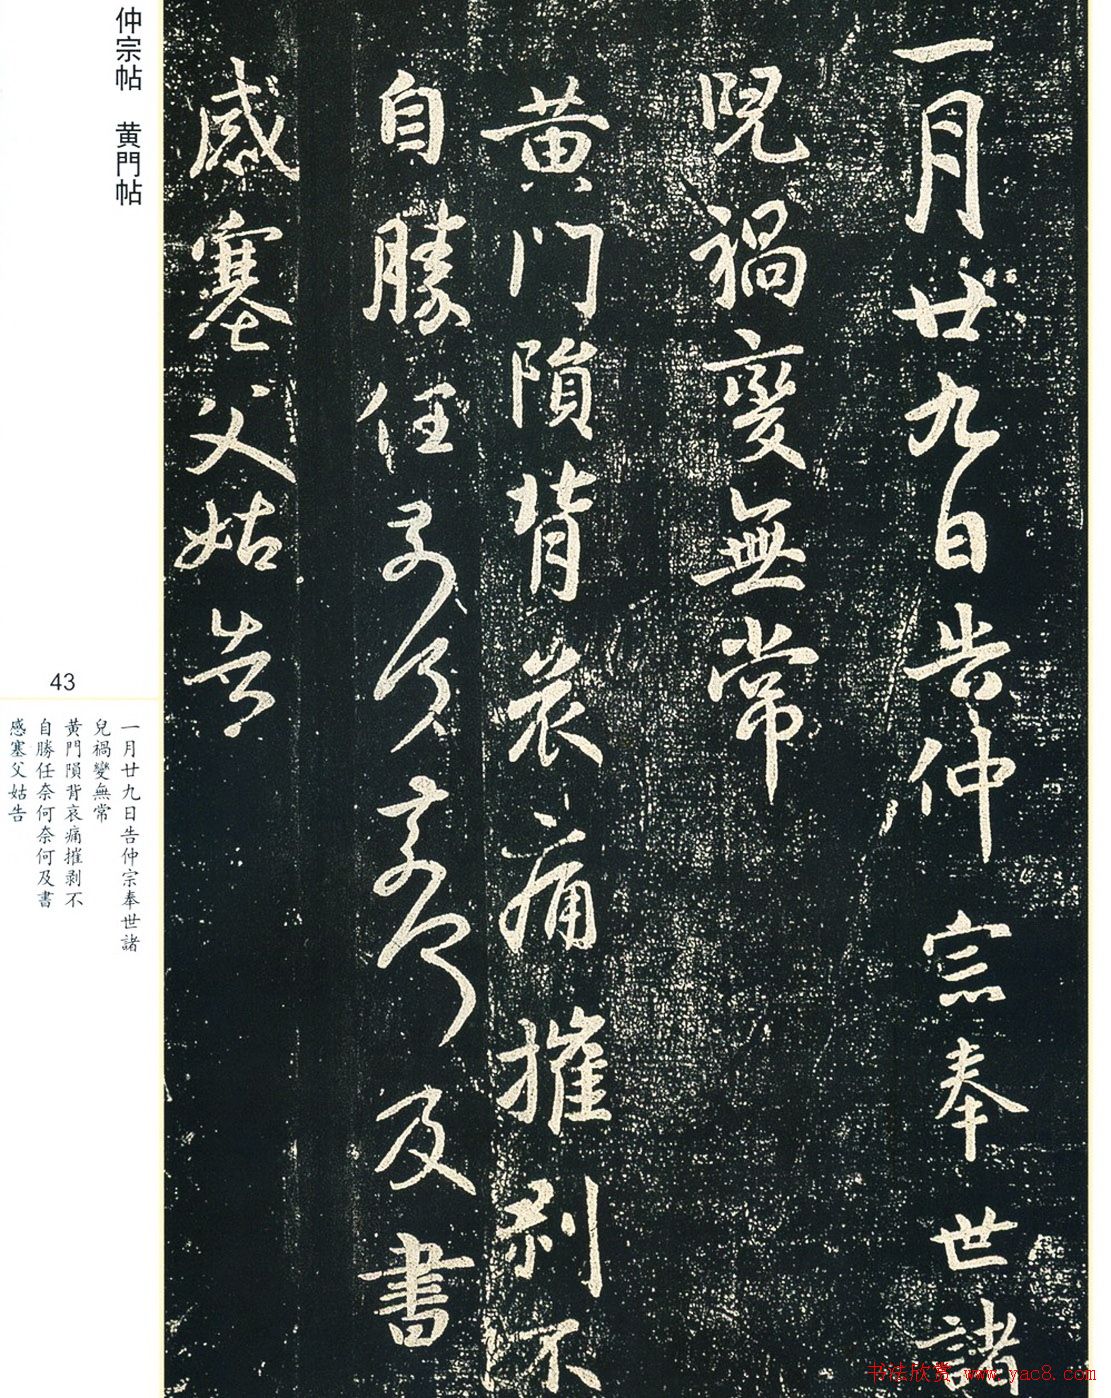 一月廿九日告仲宗奉世諸
兒禍變無常
黄门隕背哀痛摧剥不
自勝任奈何奈何及書
感塞父姑告
仲宗帖 黄門帖
43
一月廿九日告仲宗奉世諸
兒禍變無常
黄門隕背哀痛摧剥不
自勝任奈何奈何及書
感塞父姑告
书法欣赏 www.yac8.com